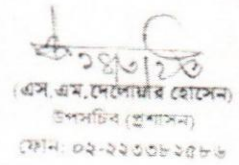 (এস. এম. দেলোয়ার হোসেন)
উপসচিব (প্রশাসন)
ফোন: ০২-২২৩৩৮২৫৮৬